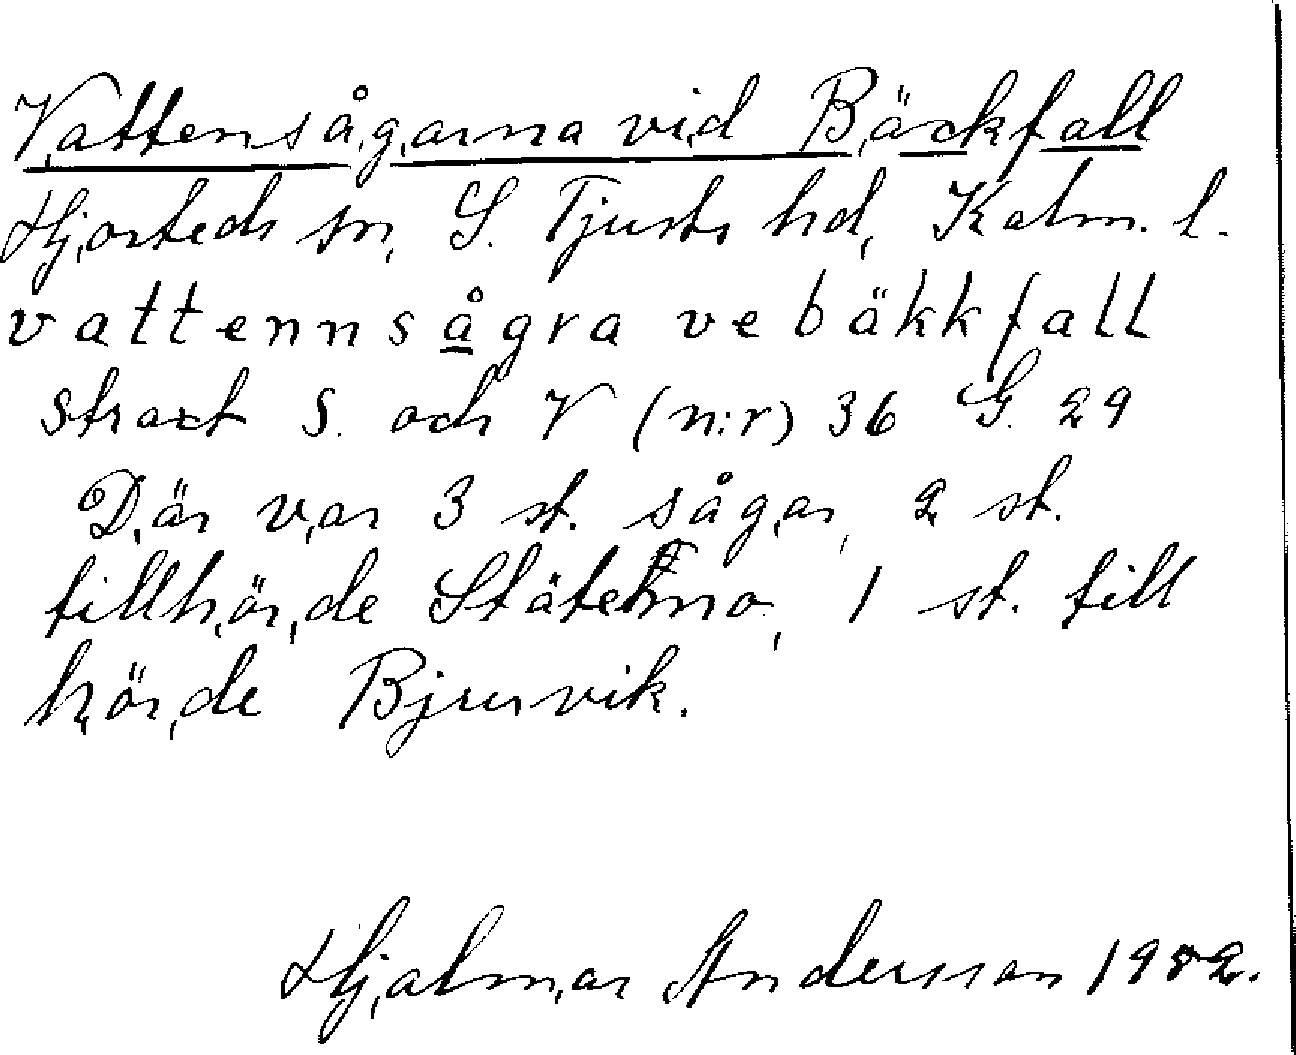 Vattensågarna vid Bäckfall
Hjorteds sn, S. Tjusts hd, Kalm. l.
vattennsågra ve bäkkfall
straxt S. och V (n:r) 36 G. 29
Där var 3 st. sågar, 2 st.
tillhörde 1 st. till
hörde Bjursvik.
Hjalmar Andersson 1982.